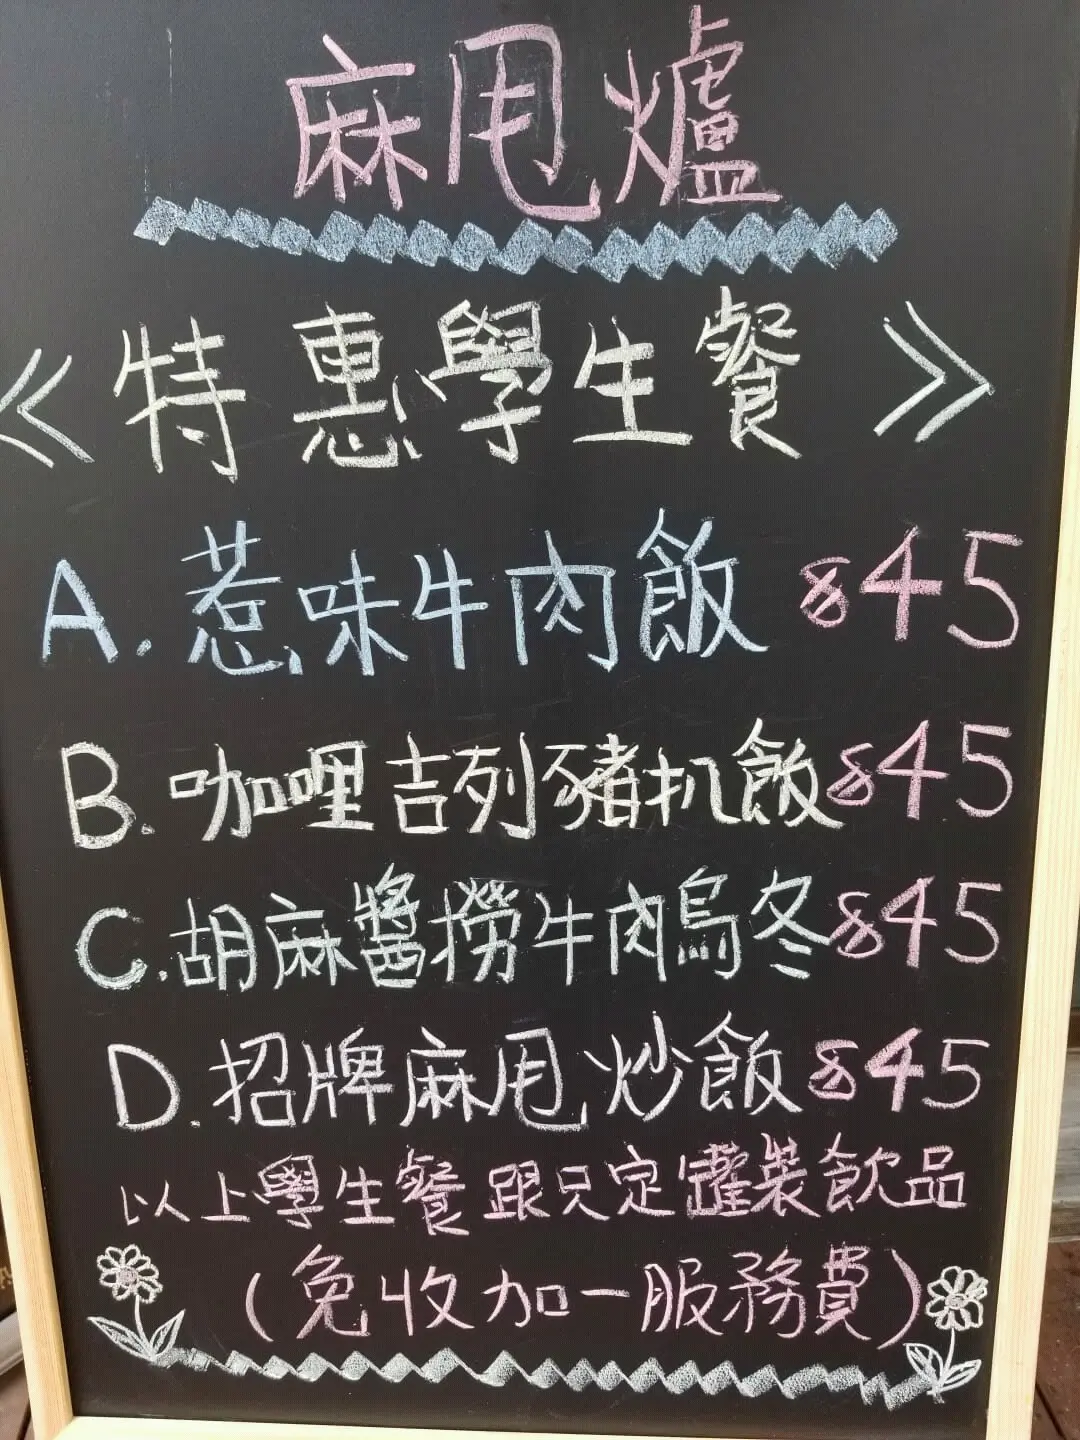 麻甩爐
《特惠學生餐》
A.惹味牛肉飯 $45
B.咖哩吉列豬扒飯 $45
C.胡麻醬撈牛肉烏冬 $45
D.招牌麻甩炒飯 $45
以上學生餐跟只定罐裝飲品
(免收加一服務費)